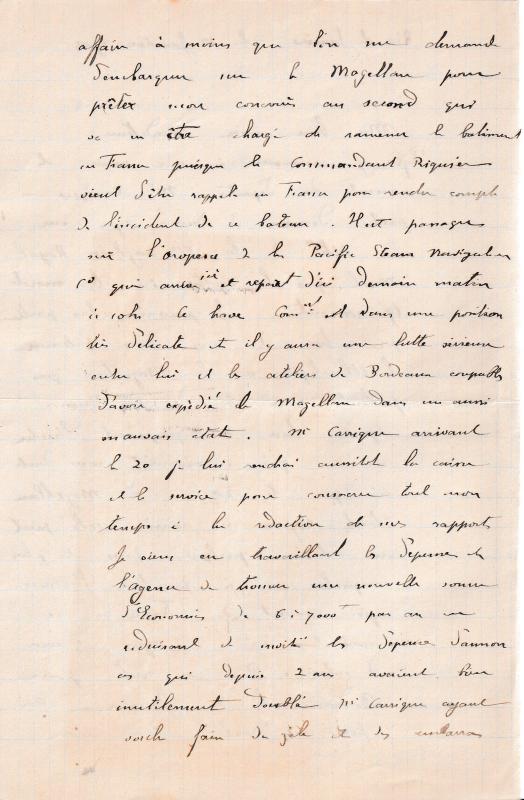 affaire à moins que l'on me demande
d'embarquer sur le Magellan pour
prêter mon concours au second qui
va être chargé de ramener le bâtiment
en France puisque le Commandant Riquier
vient d'être rappelé en France pour rendre compte
de l'incident de ce bateau. Il est passager
sur l'Oropesa de la Pacific Steam Navigation
Co qui arrive ici et repart d'ici demain matin
à cette le brave Comt est dans une position
très délicate et il y aura une lutte sérieuse
entre lui et les ateliers de Bordeaux coupables
d'avoir expédié le Magellan dans un aussi
mauvais état. Mr Carrique arrivant
le 20 je lui rendrai aussitôt la caisse
et le service pour consacrer tout mon
temps à la rédaction de mes rapports
Je viens en travaillant les dépenses de
l'agence de trouver une nouvelle somme
d'Economies de 6 à 7000f par an en
réduisant de moitié les dépenses d'annon
ces qui depuis 2 ans avaient bien
inutilement doublé Mr Carrique ayant
voulu faire du zèle et des embarras